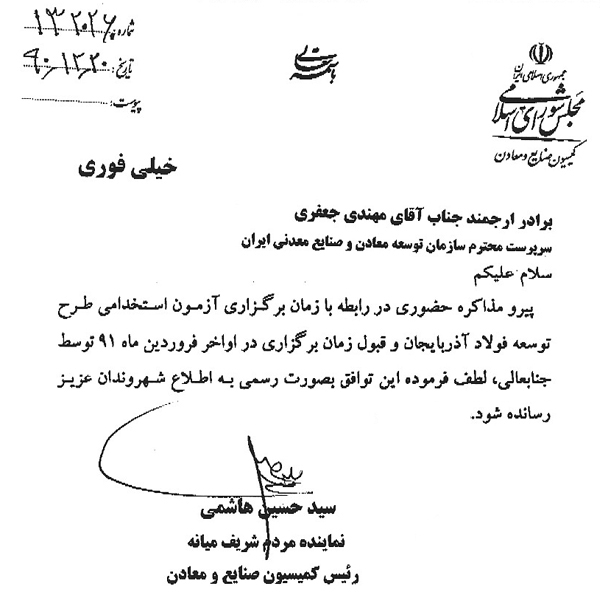 شماره: ۱۳۲۰۲۶
تاریخ: ۹۰/۱۲/۲۰
پیوست:
باسمه تعالی
جمهوری اسلامی ایران
مجلس شورای اسلامی
کمیسیون صنایع و معادن
خیلی فوری
برادر ارجمند جناب آقای مهندی جعفری
سرپرست محترم سازمان توسعه معادن و صنایع معدنی ایران
سلام علیکم
پیرو مذاکره حضوری در رابطه با زمان برگزاری آزمون استخدامی طرح
توسعه فولاد آذربایجان و قبول زمان برگزاری در اواخر فروردین ماه ۹۱ توسط
جنابعالی، لطف فرموده این توافق بصورت رسمی به اطلاع شهروندان عزیز
رسانده شود.
سید حسین هاشمی
نماینده مردم شریف میانه
رئیس کمیسیون صنایع و معادن